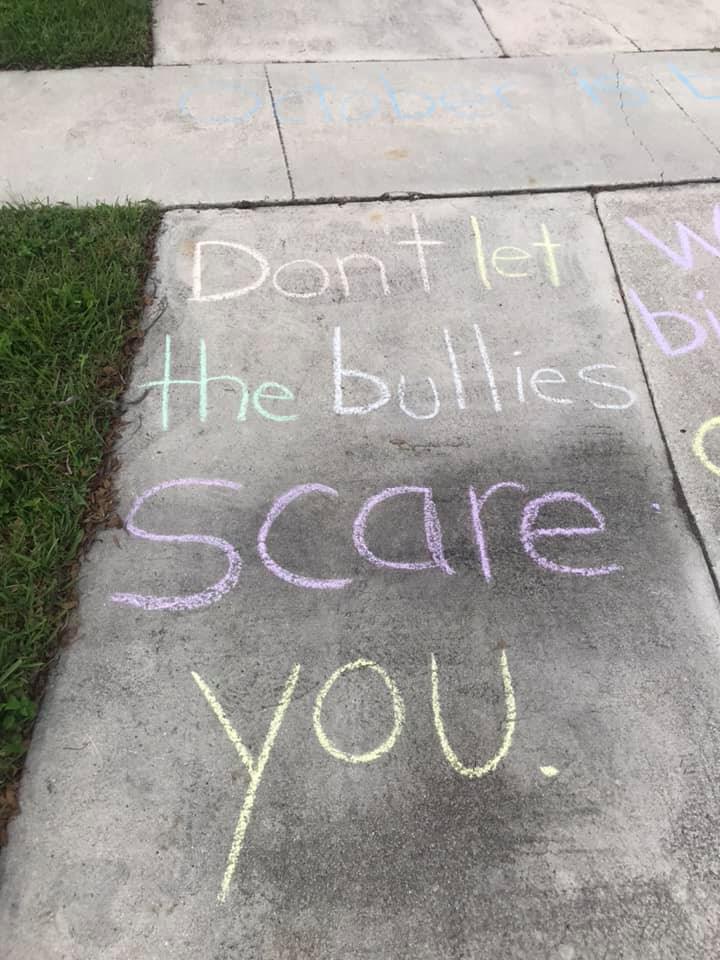 October is
Don't let
the bullies
scare
you.
bi